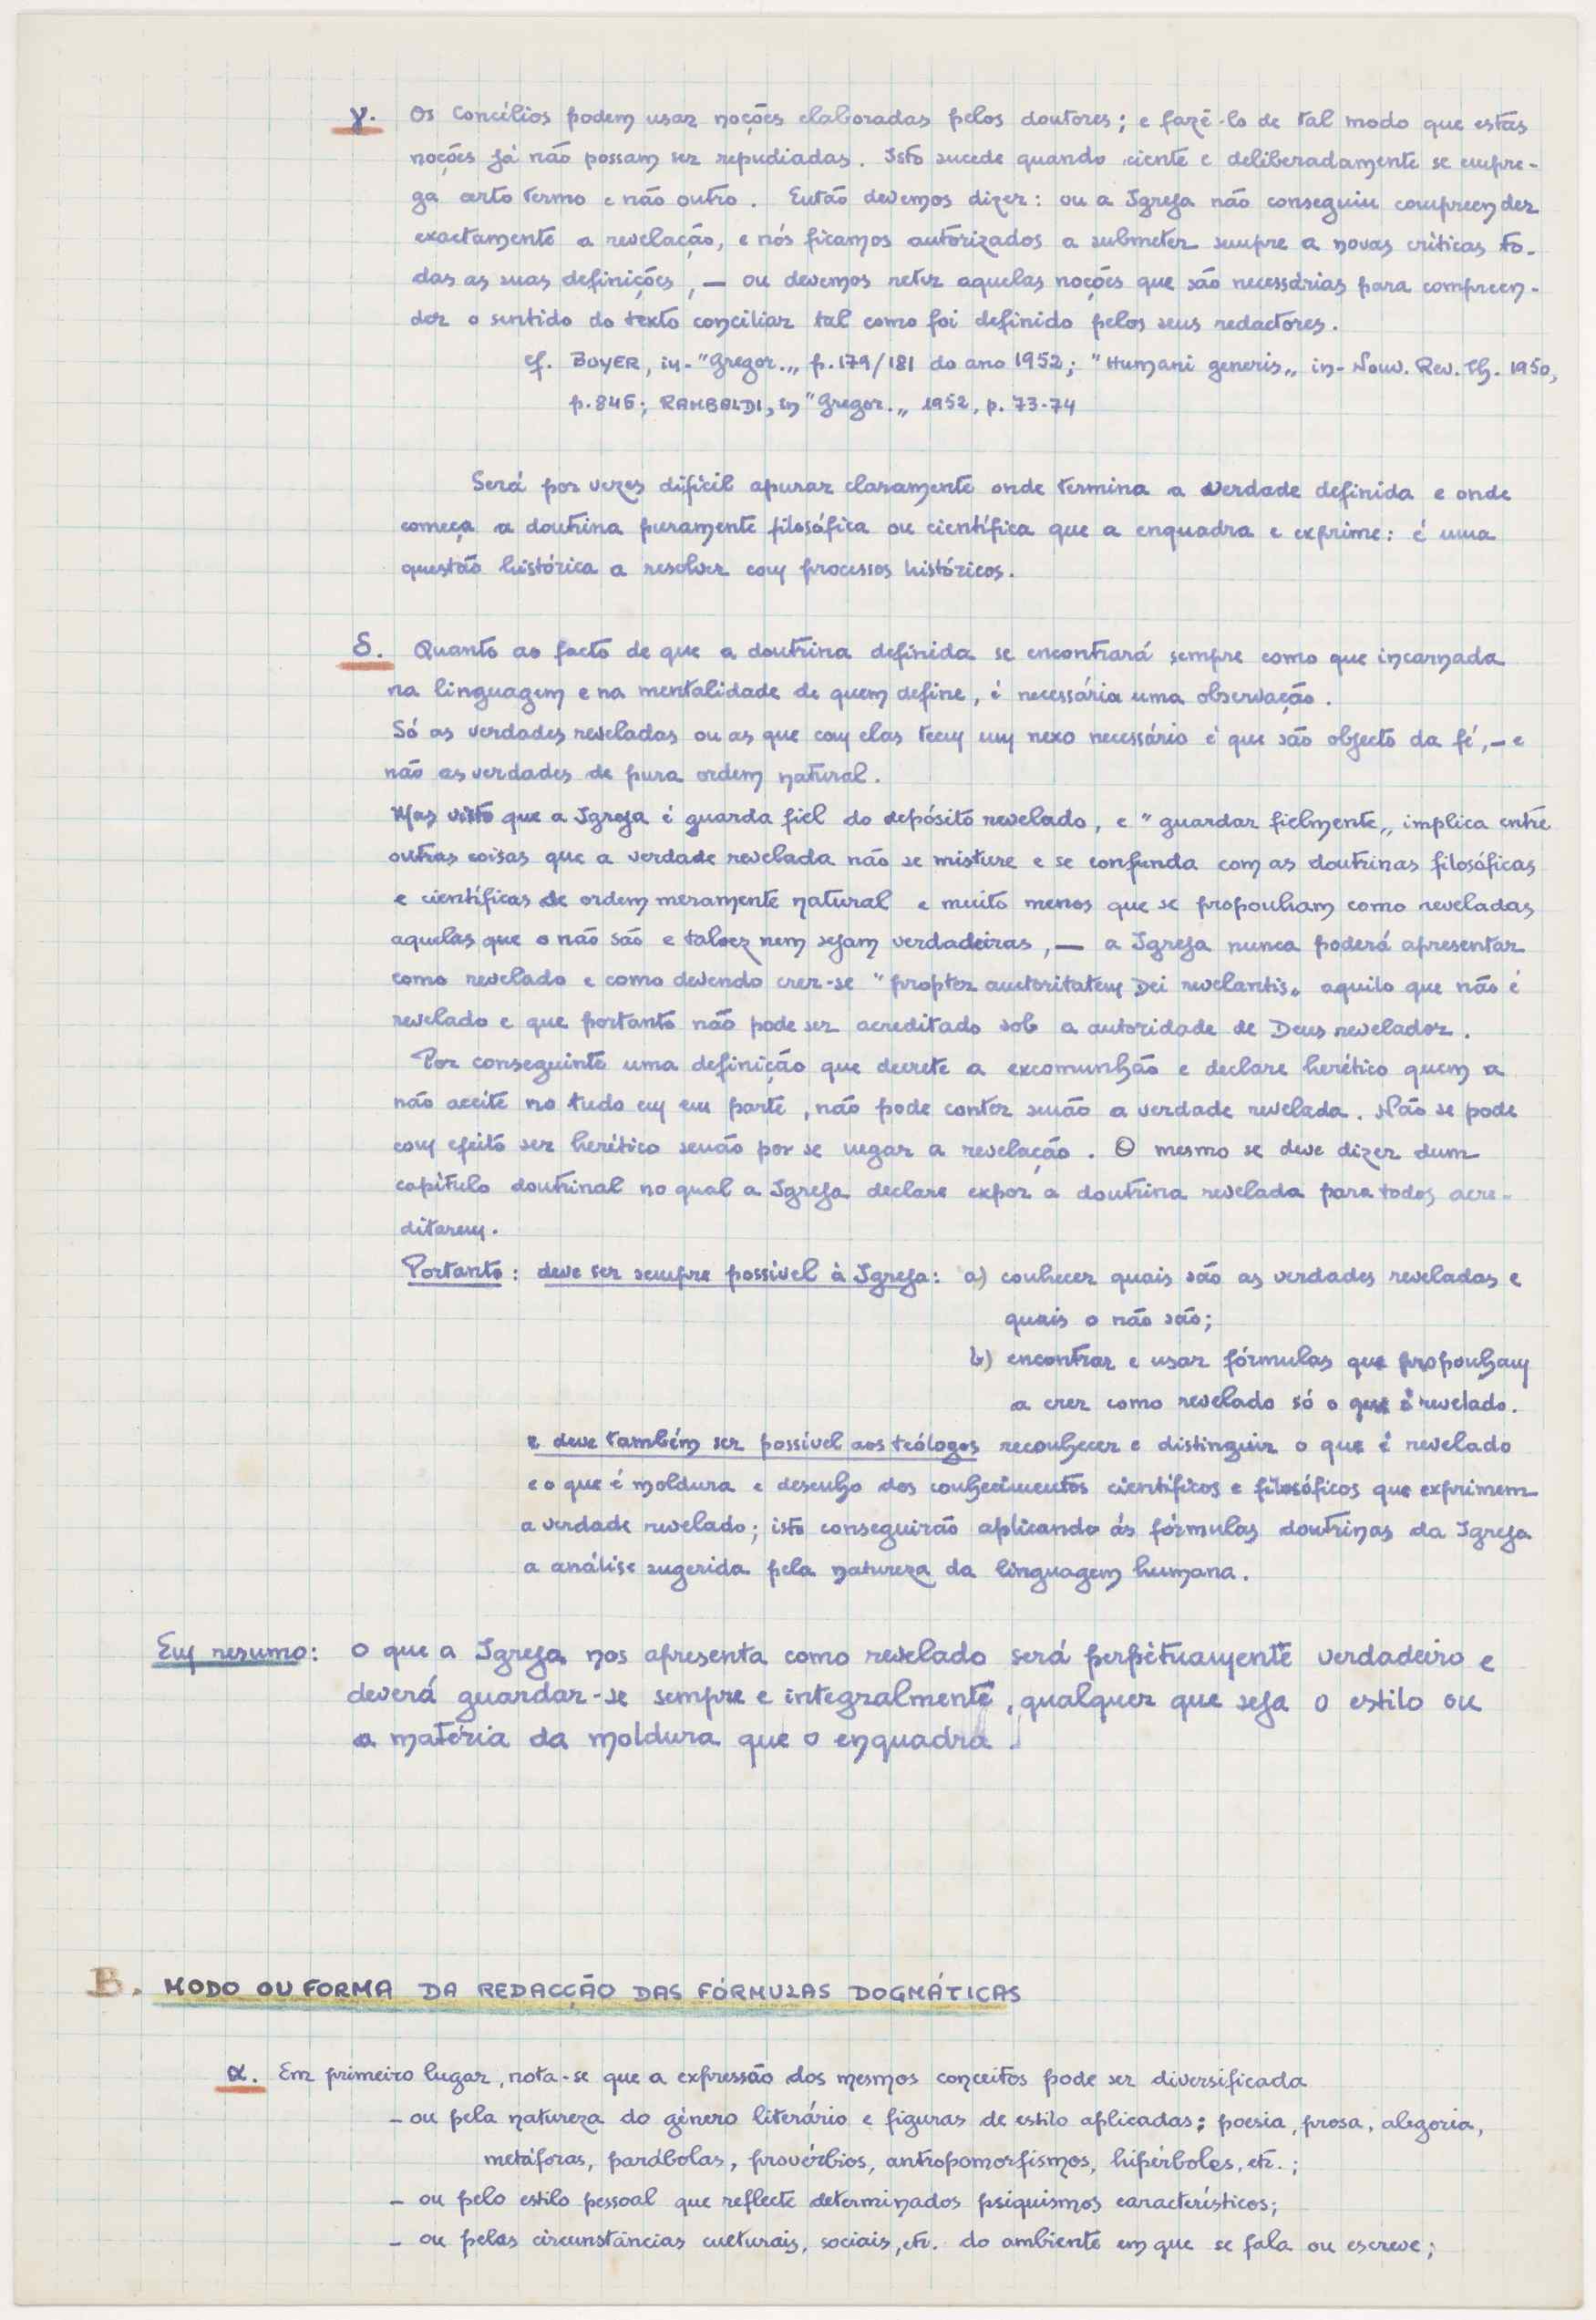 γ. Os Concílios podem usar noções elaboradas pelos doutores; e fazê-lo de tal modo que estas
noções já não possam ser repudiadas. Isto sucede quando ciente e deliberadamente se empre-
ga certo termo e não outro. Então devemos dizer: ou a Igreja não conseguiu compreender
exactamente a revelação, e nós ficamos autorizados a submeter sempre a novas críticas to-
das as suas definições, — ou devemos reter aquelas noções que são necessárias para compreen-
der o sentido do texto conciliar tal como foi definido pelos seus redactores.
cf. BOYER, in-"Gregor.„ p. 179/181 do ano 1952; "Humani generis„ in- Nouv. Rev. Th. 1950,
p. 846; RAMBALDI, in "Gregor.„ 1952, p. 73-74
Será por vezes difícil apurar claramente onde termina a verdade definida e onde
começa a doutrina puramente filosófica ou científica que a enquadra e exprime: é uma
questão histórica a resolver com processos históricos.
δ. Quanto ao facto de que a doutrina definida se encontrará sempre como que incarnada
na linguagem e na mentalidade de quem define, é necessária uma observação.
Só as verdades reveladas ou as que com elas teem um nexo necessário é que são objecto da fé, – e
não as verdades de pura ordem natural.
Mas visto que a Igreja é guarda fiel do depósito revelado, e "guardar fielmente„ implica entre
outras coisas que a verdade revelada não se misture e se confunda com as doutrinas filosóficas
e científicas de ordem meramente natural e muito menos que se proponham como reveladas
aquelas que o não são e talvez nem sejam verdadeiras, — a Igreja nunca poderá apresentar
como revelado e como devendo crer-se "propter auctoritatem Dei revelantis„ aquilo que não é
revelado e que portanto não pode ser acreditado sob a autoridade de Deus revelador.
Por conseguinte uma definição que decrete a excomunhão e declare herético quem a
não aceite no tudo em em parte, não pode conter senão a verdade revelada. Não se pode
com efeito ser herético senão por se negar a revelação. O mesmo se deve dizer dum
capítulo doutrinal no qual a Igreja declare expor a doutrina revelada para todos acre-
ditarem.
Portanto: deve ser sempre possível à Igreja: a) conhecer quais são as verdades reveladas e
quais o não são;
b) encontrar e usar fórmulas que proponham
a crer como revelado só o que é revelado.
e deve também ser possível aos teólogos reconhecer e distinguir o que é revelado
e o que é moldura e desenho dos conhecimentos científicos e filosóficos que exprimem
a verdade revelado; isto conseguirão aplicando ás fórmulas doutrinas da Igreja
a análise sugerida pela natureza da linguagem humana.
Em resumo: o que a Igreja nos apresenta como revelado será perpètuamente verdadeiro e
deverá guardar-se sempre e integralmente, qualquer que seja o estilo ou
a matéria da moldura que o enquadra.
B. MODO OU FORMA DA REDACÇÃO DAS FÓRMULAS DOGMÁTICAS
α. Em primeiro lugar, nota-se que a expressão dos mesmos conceitos pode ser diversificada
– ou pela natureza do género literário e figuras de estilo aplicadas; poesia, prosa, alegoria,
metáforas, parábolas, provérbios, antropomorfismos, hipérboles, etc.;
– ou pelo estilo pessoal que reflecte determinados psiquismos característicos;
– ou pelas circunstâncias culturais, sociais, etc. do ambiente em que se fala ou escreve;